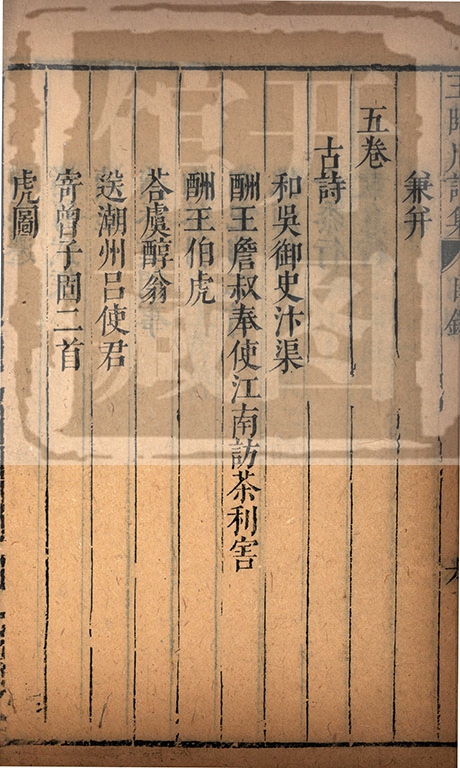 王臨川詩集 目錄
兼并
五卷
古詩
和吳御史汴渠
酬王詹叔奉使江南訪茶利害
酬王伯虎
荅虞醇翁
送潮州呂使君
寄曾子固二首
虎圖